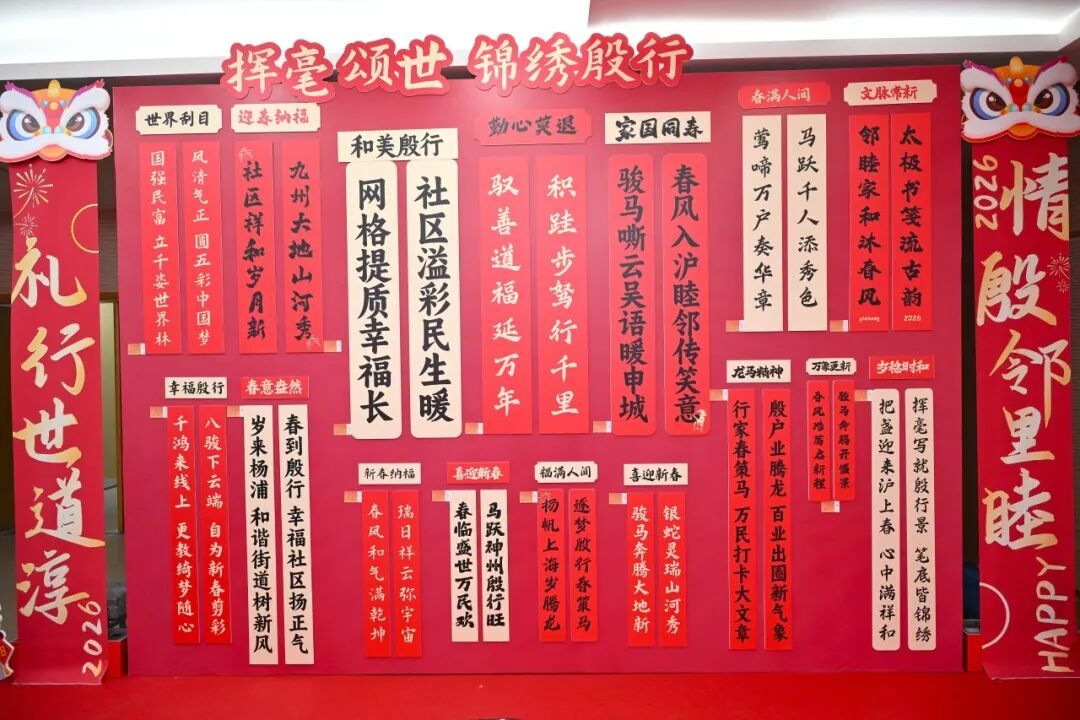 挥毫颂世 锦绣殷行
情殷邻里睦
2026
HAPPY
礼行世道淳
2026
文脉常新
太极书笺流古韵
邻睦家和沐春风
yinhang 2026
春满人间
马跃千人添秀色
莺啼万户奏华章
家国同春
春风入沪睦邻传笑意
骏马嘶云吴语暖申城
勤心莫退
积跬步驽行千里
驭善道福延万年
和美殷行
社区溢彩民生暖
网格提质幸福长
迎春纳福
九州大地山河秀
社区祥和岁月新
世界刮目
风清气正 圆五彩中国梦
国强民富 立千姿世界林
岁稔时和
挥毫写就殷行景 笔底皆锦绣
把盏迎来沪上春 心中满祥和
万象更新
骏马奔腾开盛景
春风浩荡启新程
龙马精神
殷户业腾龙 百业出圈新气象
行家春策马 万民打卡大文章
喜迎新春
银蛇灵瑞山河秀
骏马奔腾大地新
福满人间
逐梦殷行春策马
扬帆上海岁腾龙
喜迎新春
马跃神州殷行旺
春临盛世万民欢
新春纳福
瑞日祥云弥宇宙
春风和气满乾坤
春意盎然
春到殷行 幸福社区扬正气
岁来杨浦 和谐街道树新风
幸福殷行
八骏下云端 自为新春剪彩
千鸿来线上 更教绮梦随心